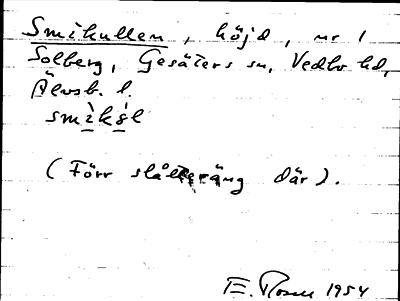 Smikullen, höjd, nr 1
Solberg, Gesäters sn, Vedbo hd,
Älvsb. l.
smìkėl
(Förr slåtteräng där).
E. Rosell 1954